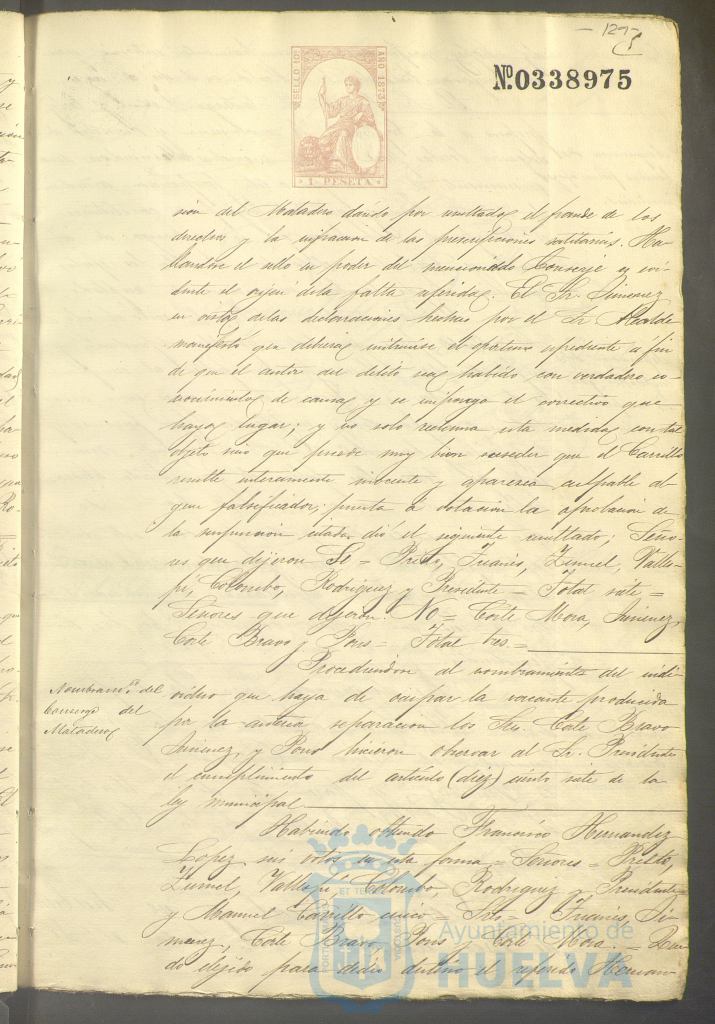 - 127 -
SELLO 10º
AÑO 1873
1 PESETA
Nº 0338975
sion del Matadero dando por resultado el fraude de los
derechos y la infraccion de las prescripciones sanitarias. Ha-
llandose el sello en poder del mencionado Conserge y evi-
dente el origen de la falta referida. El Sr. Jimenez
en vista de las declaraciones hechas por el Sr Alcalde
manifestó que deberia instruirse el oportuno espediente a fin
de que el autor del delito sea habido con verdadero co-
nocimiento de causa y se imponga el correctivo que
haya lugar; y no solo reclama esta medida con tal
objeto sino que puede muy bien suceder que el Carrillo
resulte enteramente inocente y aparezca culpable al-
gun falsificador; puesta a votacion la aprobacion de
la suspension citada dió el siguiente resultado: Seño-
res que dijeron Si = Prieto, Trianes, Zumel, Valla-
fé, Colombo, Rodriguez y Presidente = Total siete =
Señores que dijeron No = Corte Mora, Jimenez,
Corte Bravo y Pons = Total tres =
Nombramto. del
Conserge del
Matadero
Procediendose al nombramiento del indi-
viduo que haya de ocupar la vacante producida
por la anterior separacion los Sres. Corte Bravo
Jimenez, y Pons hicieron observar al Sr. Presidente
el cumplimiento del artículo (diez) ciento siete de la
ley municipal
Habiendo obtenido Francisco Hernandez
Lopez seis votos en esta forma = Señores = Prieto,
Zumel, Vallafé, Colombo, Rodriguez y Presidente =
y Manuel Carrillo cinco = Sres = Trianes, Ji-
menez, Corte Bravo, Pons y Corte Mora. = Quedan-
do elejido para dicho destino el referido Hernan-
Ayuntamiento de
HUELVA